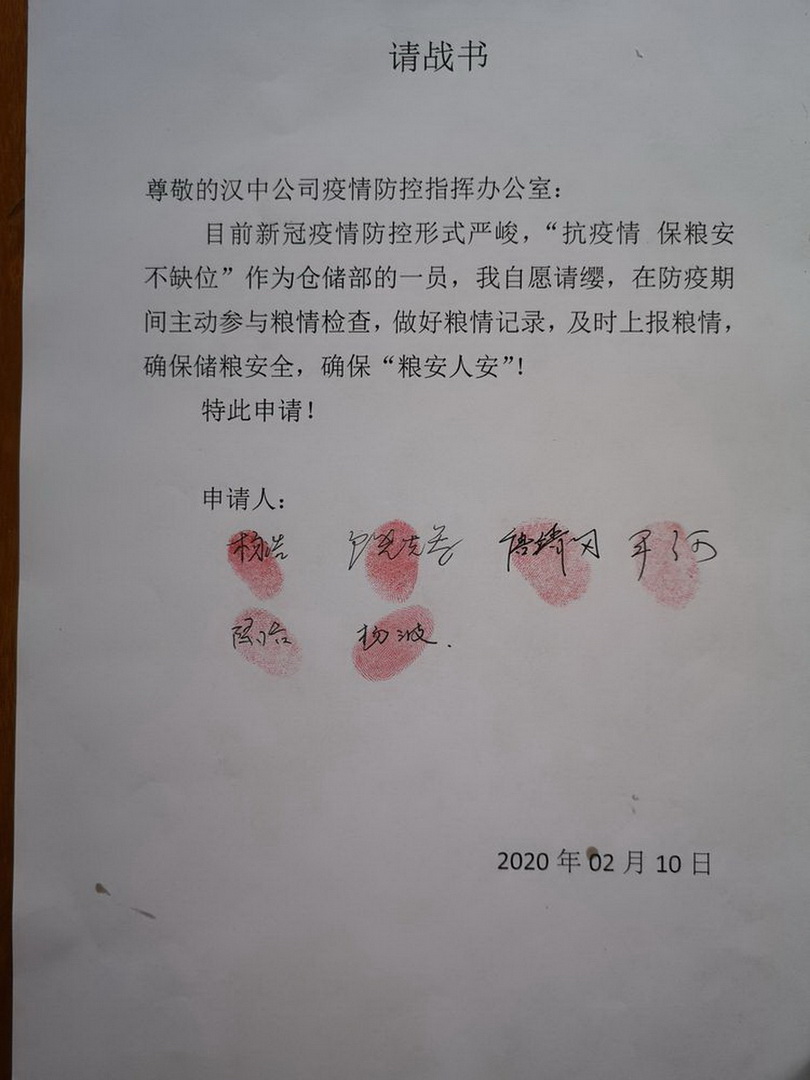 请战书
尊敬的汉中公司疫情防控指挥办公室：
目前新冠疫情防控形式严峻，“抗疫情 保粮安
不缺位”作为仓储部的一员，我自愿请缨，在防疫期
间主动参与粮情检查，做好粮情记录，及时上报粮情，
确保储粮安全，确保“粮安人安”!
特此申请！
申请人：
杨浩
杨波.
2020 年 02 月 10 日